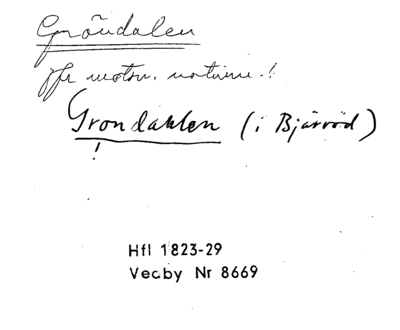 Gröndalen
jfr motsv. noturin.!
Grondahlen (i Bjärröd)
!
Hfl 1823-29
Vecby Nr 8669